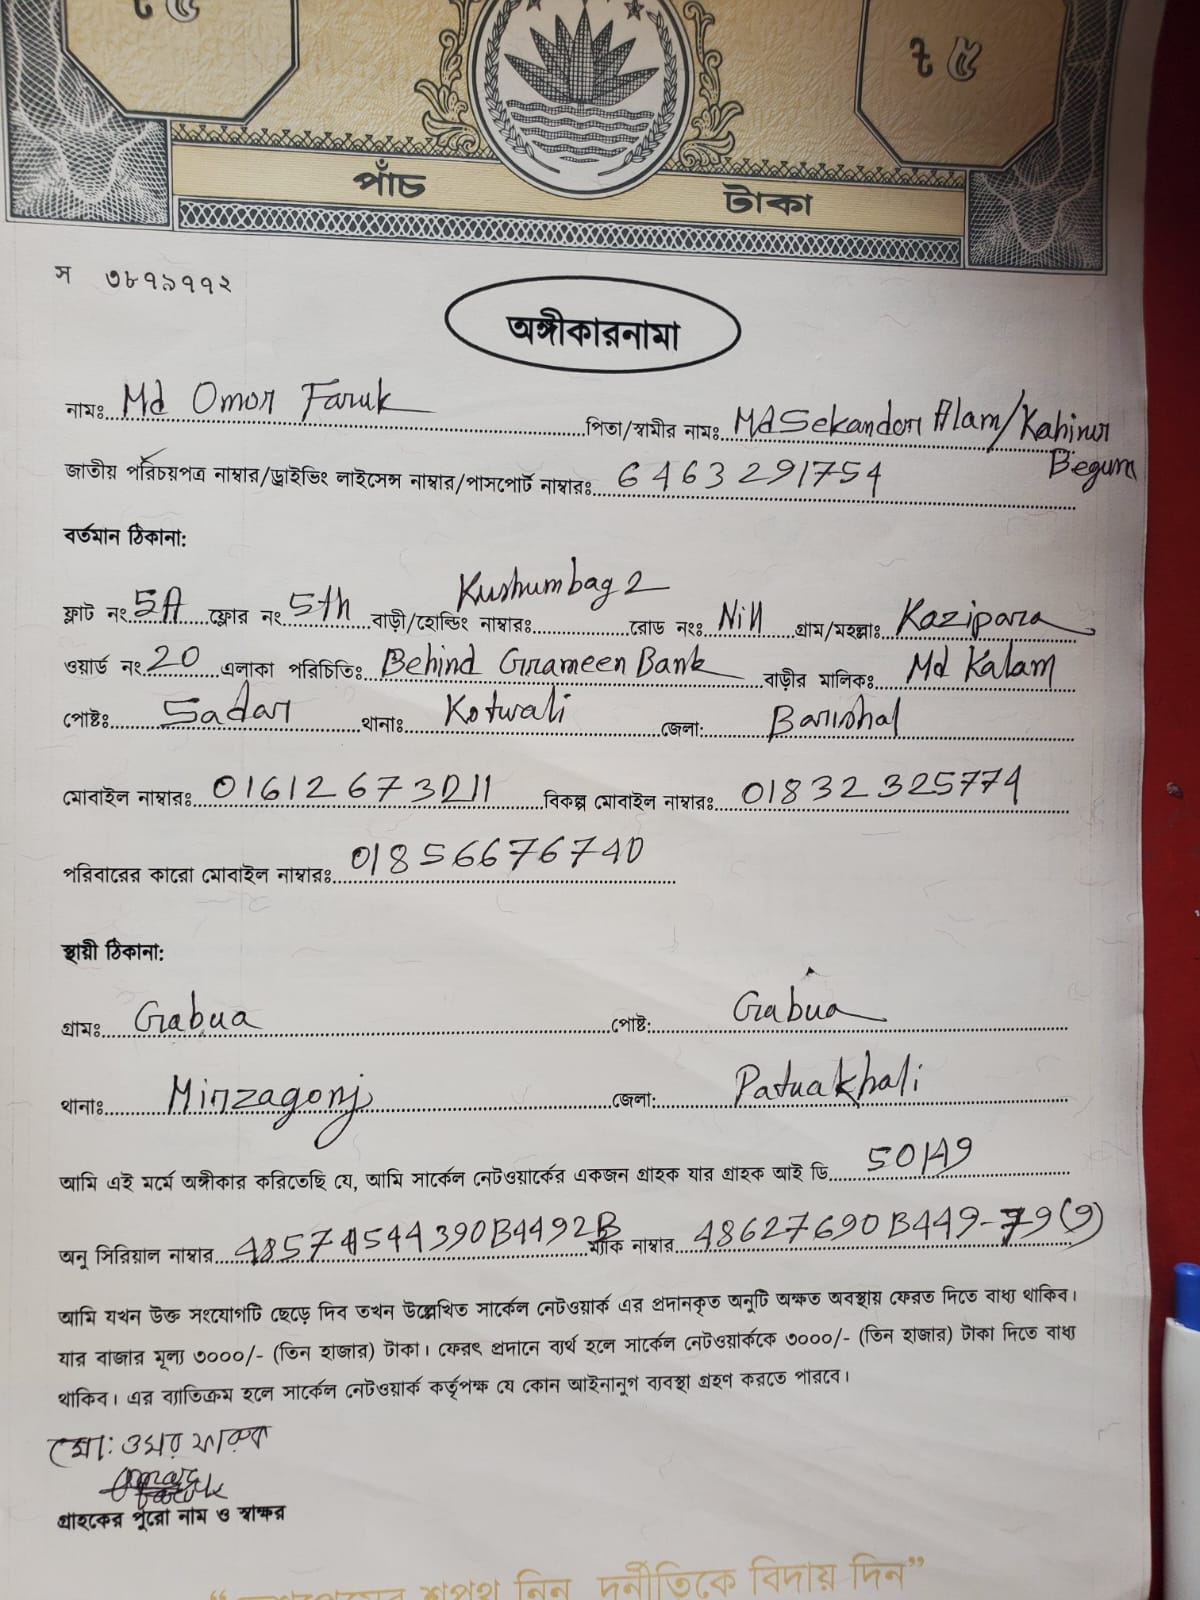 ৳ ৫ ৳ ৫
পাঁচ টাকা
স ৩৮৭৯৭৭২
অঙ্গীকারনামা
নামঃ Md Omor Faruk পিতা/স্বামীর নামঃ Md Sekandor Alam/Kahinur Begum
জাতীয় পরিচয়পত্র নাম্বার/ড্রাইভিং লাইসেন্স নাম্বার/পাসপোর্ট নাম্বারঃ 6463291754
বর্তমান ঠিকানা:
ফ্লাট নং 5A ফ্লোর নং 5th বাড়ী/হোল্ডিং নাম্বারঃ Kushumbag 2 রোড নংঃ Nill গ্রাম/মহল্লাঃ Kazipara
ওয়ার্ড নং 20 এলাকা পরিচিতিঃ Behind Grameen Bank বাড়ীর মালিকঃ Md Kalam
পোষ্টঃ Sadar থানাঃ Kotwali জেলা: Barishal
মোবাইল নাম্বারঃ 01612673011 বিকল্প মোবাইল নাম্বারঃ 01832325774
পরিবারের কারো মোবাইল নাম্বারঃ 01856676740
স্থায়ী ঠিকানা:
গ্রামঃ Grabua পোষ্ট: Grabua
থানাঃ Mirzagonj জেলা: Patuakhali
আমি এই মর্মে অঙ্গীকার করিতেছি যে, আমি সার্কেল নেটওয়ার্কের একজন গ্রাহক যার গ্রাহক আই ডি 50149
অনু সিরিয়াল নাম্বার 485744544390B4492B ম্যাক নাম্বার 48627690B449-79(9)
আমি যখন উক্ত সংযোগটি ছেড়ে দিব তখন উল্লেখিত সার্কেল নেটওয়ার্ক এর প্রদানকৃত অনুটি অক্ষত অবস্থায় ফেরত দিতে বাধ্য থাকিব।
যার বাজার মূল্য ৩০০০/- (তিন হাজার) টাকা। ফেরৎ প্রদানে ব্যর্থ হলে সার্কেল নেটওয়ার্ককে ৩০০০/- (তিন হাজার) টাকা দিতে বাধ্য
থাকিব। এর ব্যাতিক্রম হলে সার্কেল নেটওয়ার্ক কর্তৃপক্ষ যে কোন আইনানুগ ব্যবস্থা গ্রহণ করতে পারবে।
মো: ওমর ফারুক
গ্রাহকের পুরো নাম ও স্বাক্ষর
শপথ নিন দুর্নীতিকে বিদায় দিন”